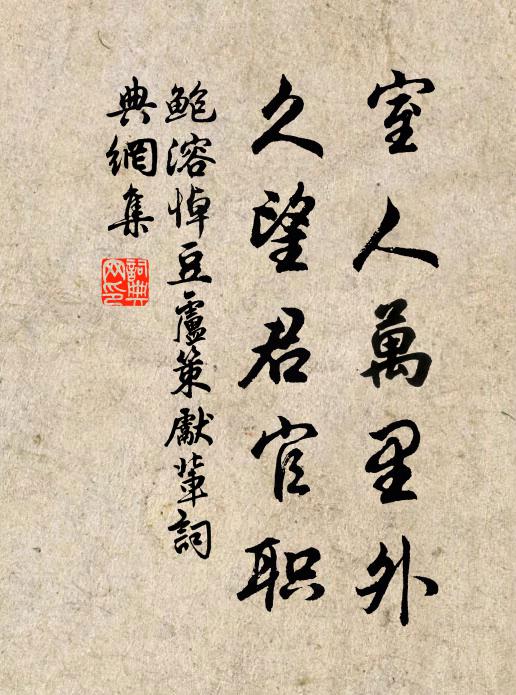 室人萬里外
久望君官职
鲍溶悼豆盧策獻輩詞
典網集
詞典網印